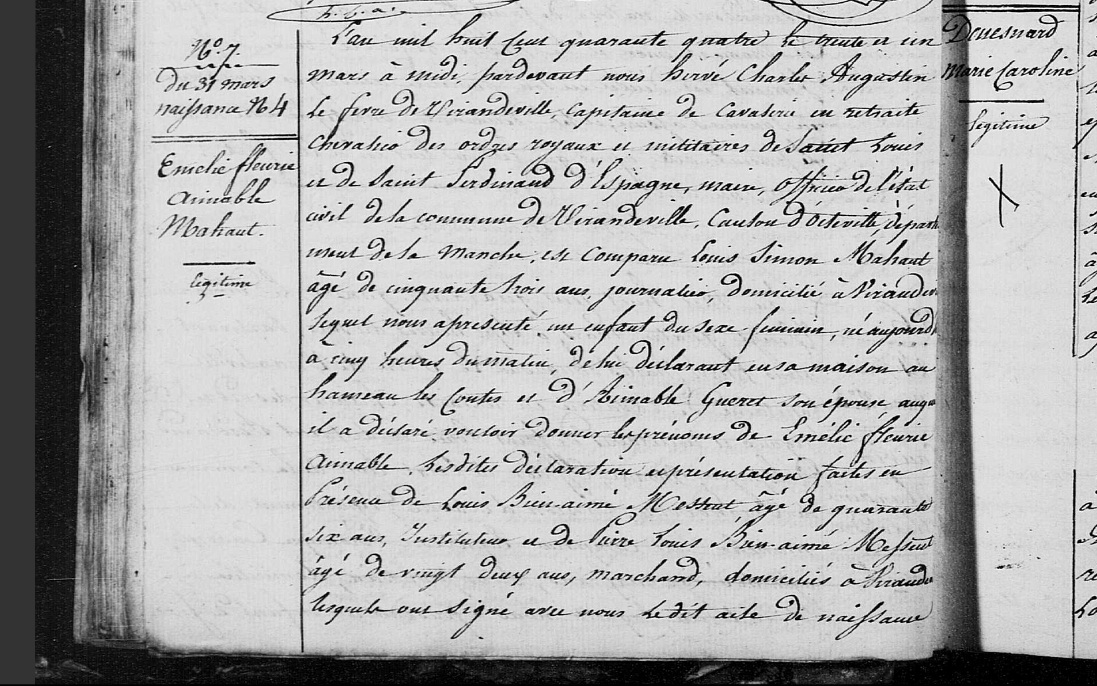 N.o 7
Du 31 mars
naissance N 4
Emelie fleurie
Aimable
Mahaut.
légitime
L'an mil huit Cent quarante quatre le trente et un
mars à midi, pardevant nous hervé Charles Augustin
le fevre de Virandeville, Capitaine de Cavalerie en retraite
Chevalier des ordres royaux et militaires de Saint Louis
et de Saint Ferdinand d'Espagne, maire, officier de l'état
civil de la commune de Virandeville, Canton d'Octeville, départe
ment de la Manche, est Comparu Louis Simon Mahaut
âgé de cinquante trois ans, journalier, domicilié à Virandev
lequel nous a présenté un enfant du sexe féminin, né aujourd
à cinq heures du matin, de lui déclarant en sa maison au
hameau les Contes et d'Aimable Gueret son épouse auqu
il a déclaré vouloir donner les prénoms de Emélie fleurie
Aimable, lesdites déclaration et présentation faites en
Présence de Louis Bien-aimé Messent âgé de quarante
six ans, Instituteur et de Pierre Louis Bien-aimé Messent
âgé de vingt deux ans, marchand, domiciliés à Virande
lesquels ont signé avec nous le dit acte de naissance
Marie Caroline
légitime